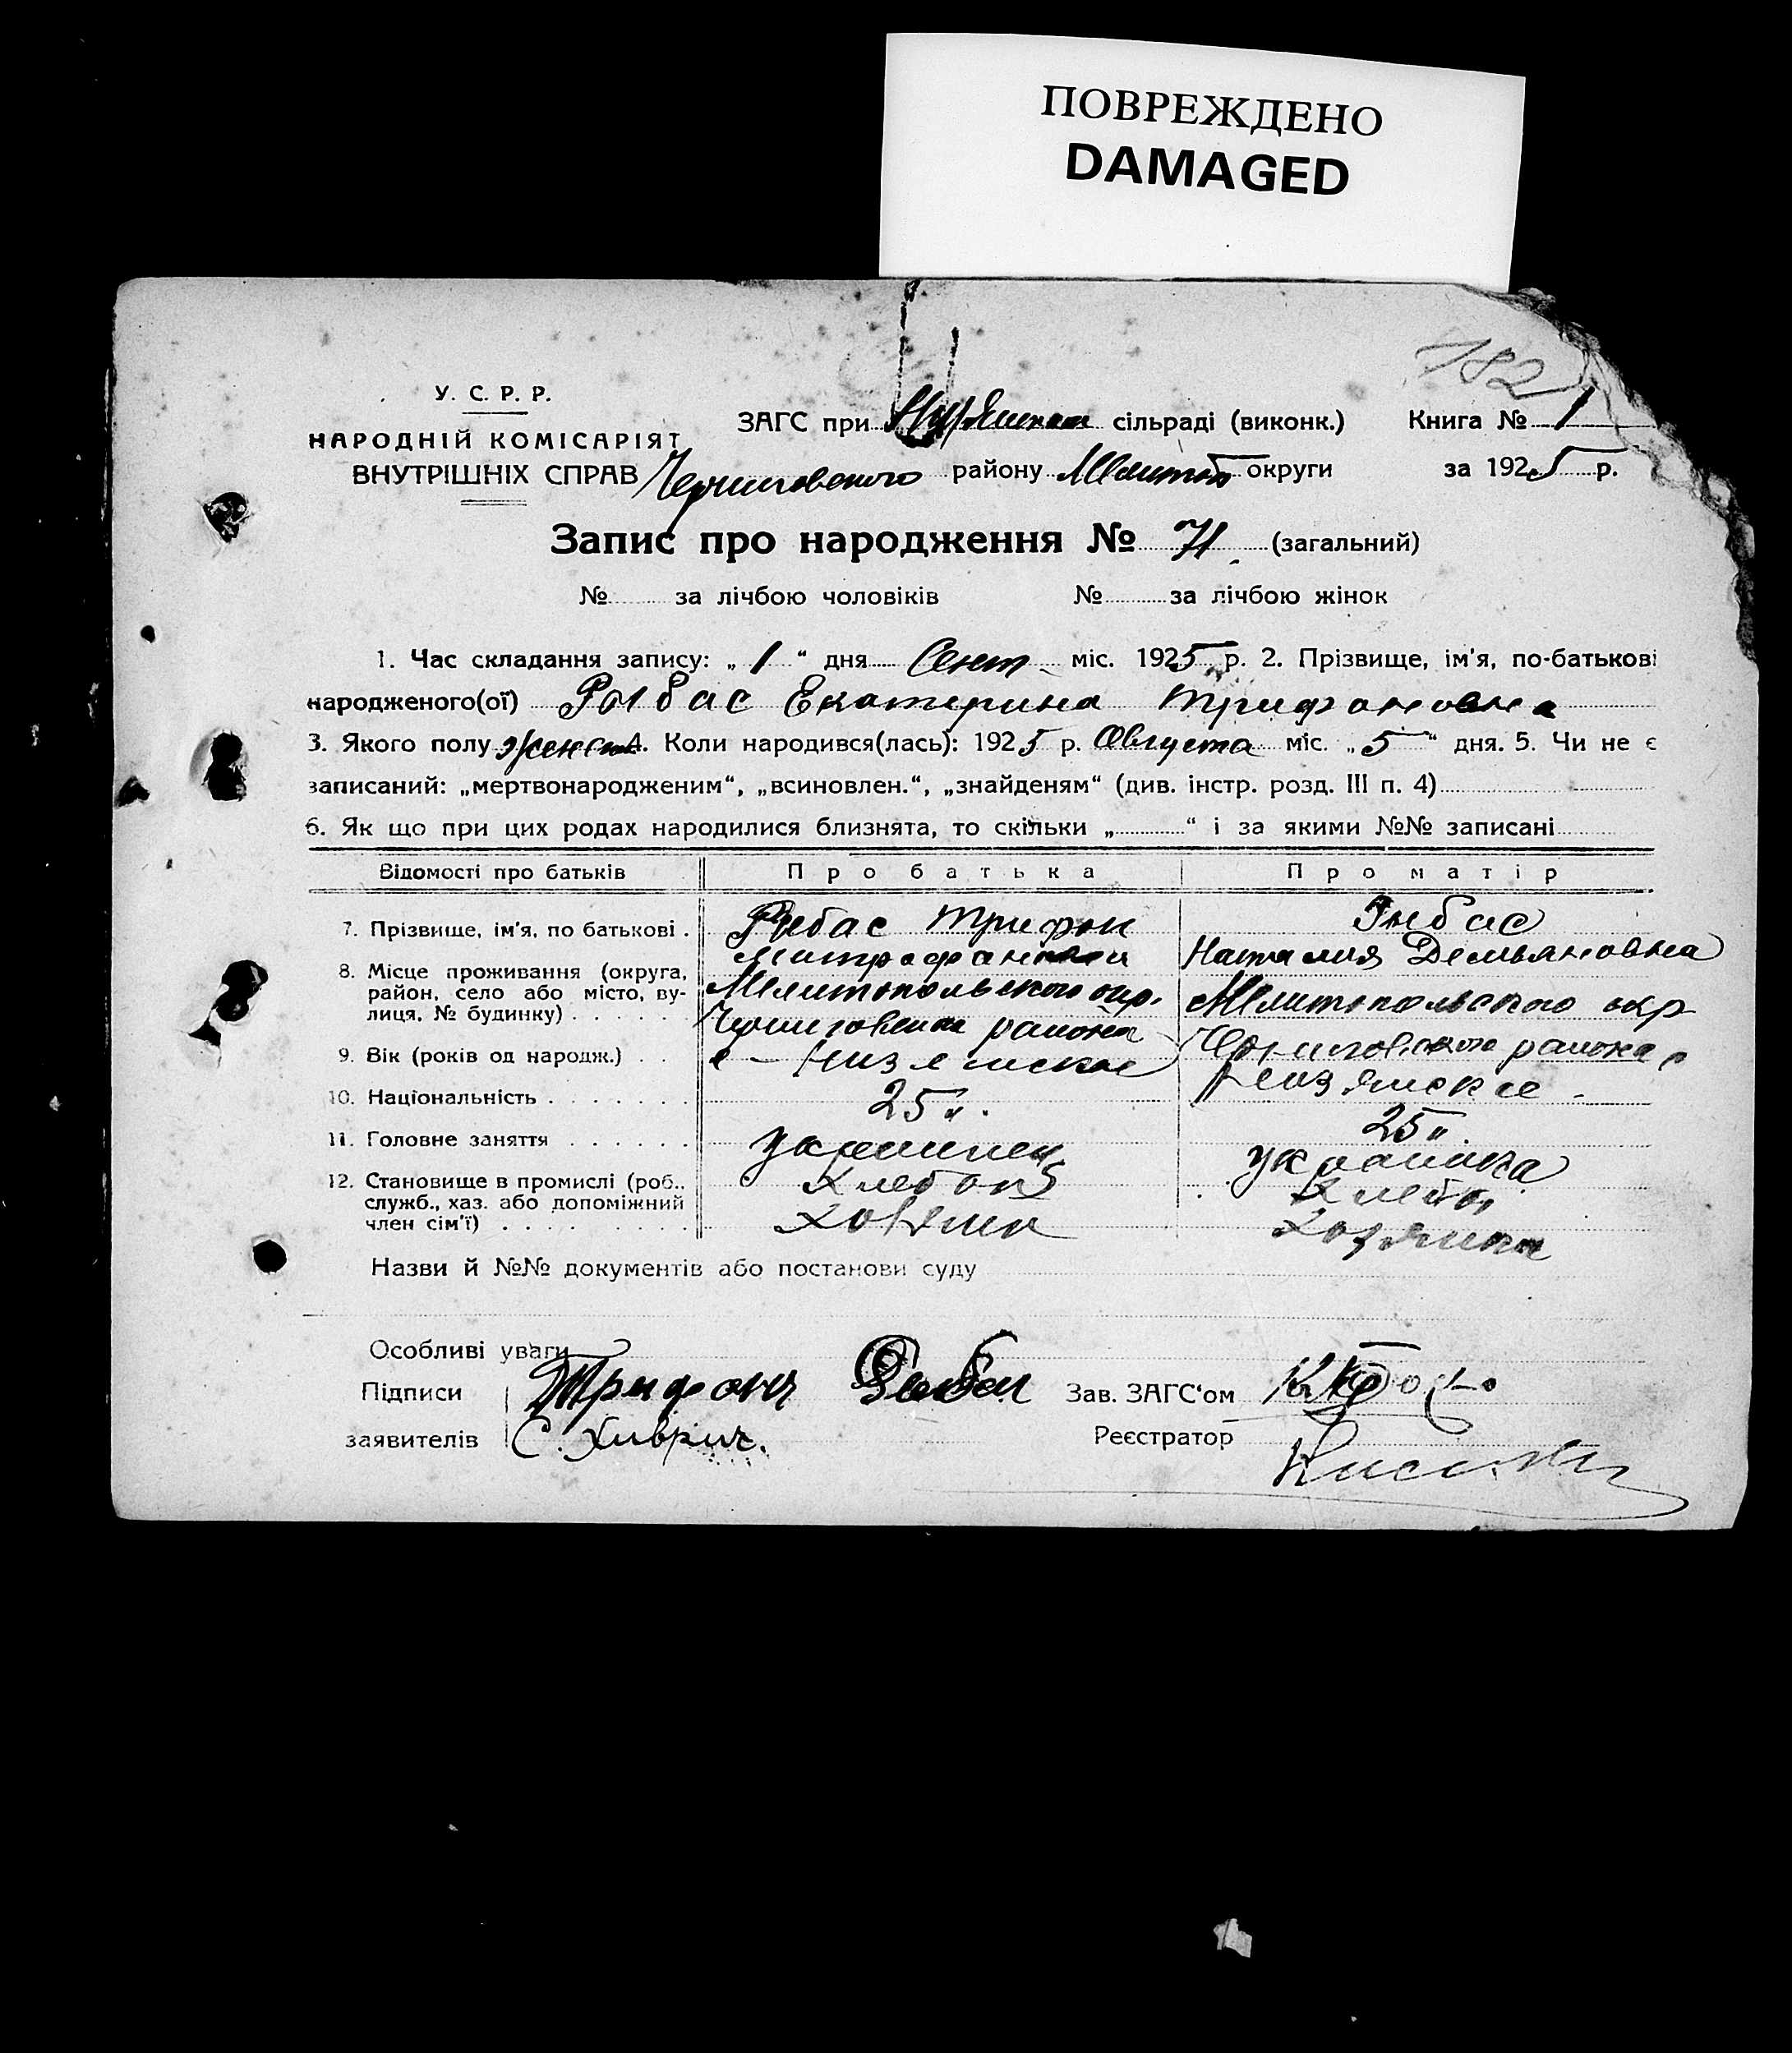 ПОВРЕЖДЕНО
DAMAGED
182
У. С. Р. Р.
НАРОДНІЙ КОМІСАРІЯТ
ВНУТРІШНІХ СПРАВ
ЗАГС при сільраді (виконк.) Книга № 1
Черниговского району Мелитоп округи за 1925 р.
Запис про народження № 71. (загальний)
№ за лічбою чоловіків № за лічбою жінок
1. Час складання запису: „ 1 “ дня Сент міс. 1925 р. 2. Прізвище, ім'я, по-батькові
народженого(ої) Рыбас Екатерина Трифоновна
3. Якого полу женск 4. Коли народився(лась): 1925 р. Августа міс. „ 5 “ дня. 5. Чи не є
записаний: „мертвонародженим“, „всиновлен.“, „знайденям“ (див. інстр. розд. III п. 4)
6. Як що при цих родах народилися близнята, то скільки „ “ і за якими №№ записані
Відомості про батьків Про батька Про матір
7. Прізвище, ім'я, по батькові . Рыбас Трифон Рыбас
Наталия Демьяновна
8. Місце проживання (округа,
район, село або місто, ву-
лиця, № будинку) . . . . . Мелитопольского окр. Мелитопольского окр
Черниговского района Черниговского района с
9. Вік (років од народж.) . . с — Низянское Низянское
10. Національність . . . . . . . 25 л. 25 л.
11. Головне заняття . . . . . . украинец украинка
12. Становище в промислі (роб.. Хлебор Хлебор
служб., хаз. або допоміжний
член сім'ї) . . . . . . . . . Хозяин Хозяйка
Назви й №№ документів або постанови суду
Особливі уваги
Підписи Трифон Рыбас Зав. ЗАГС'ом
заявителів С. Хиврич. Реєстратор